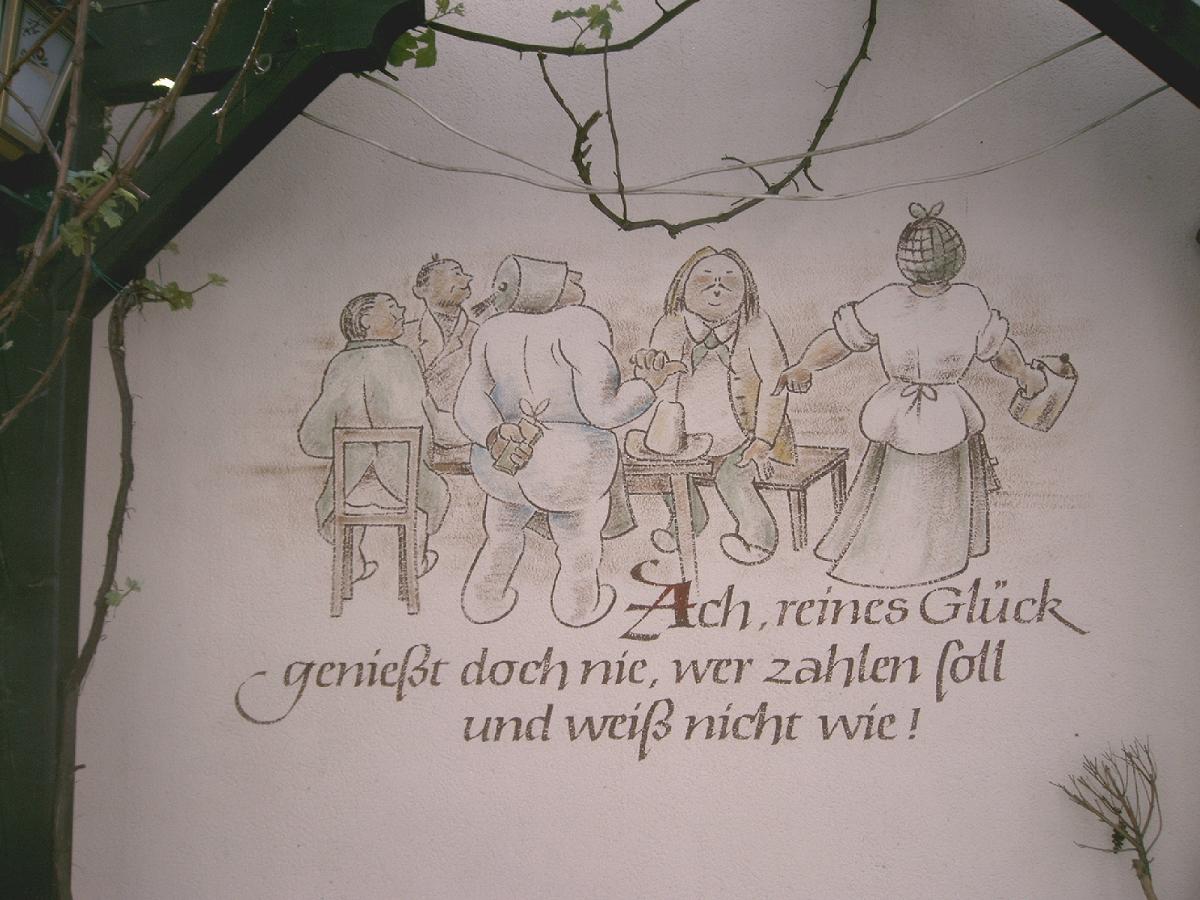 Ach, reines Glück
genießt doch nie, wer zahlen ſoll
und weiß nicht wie!